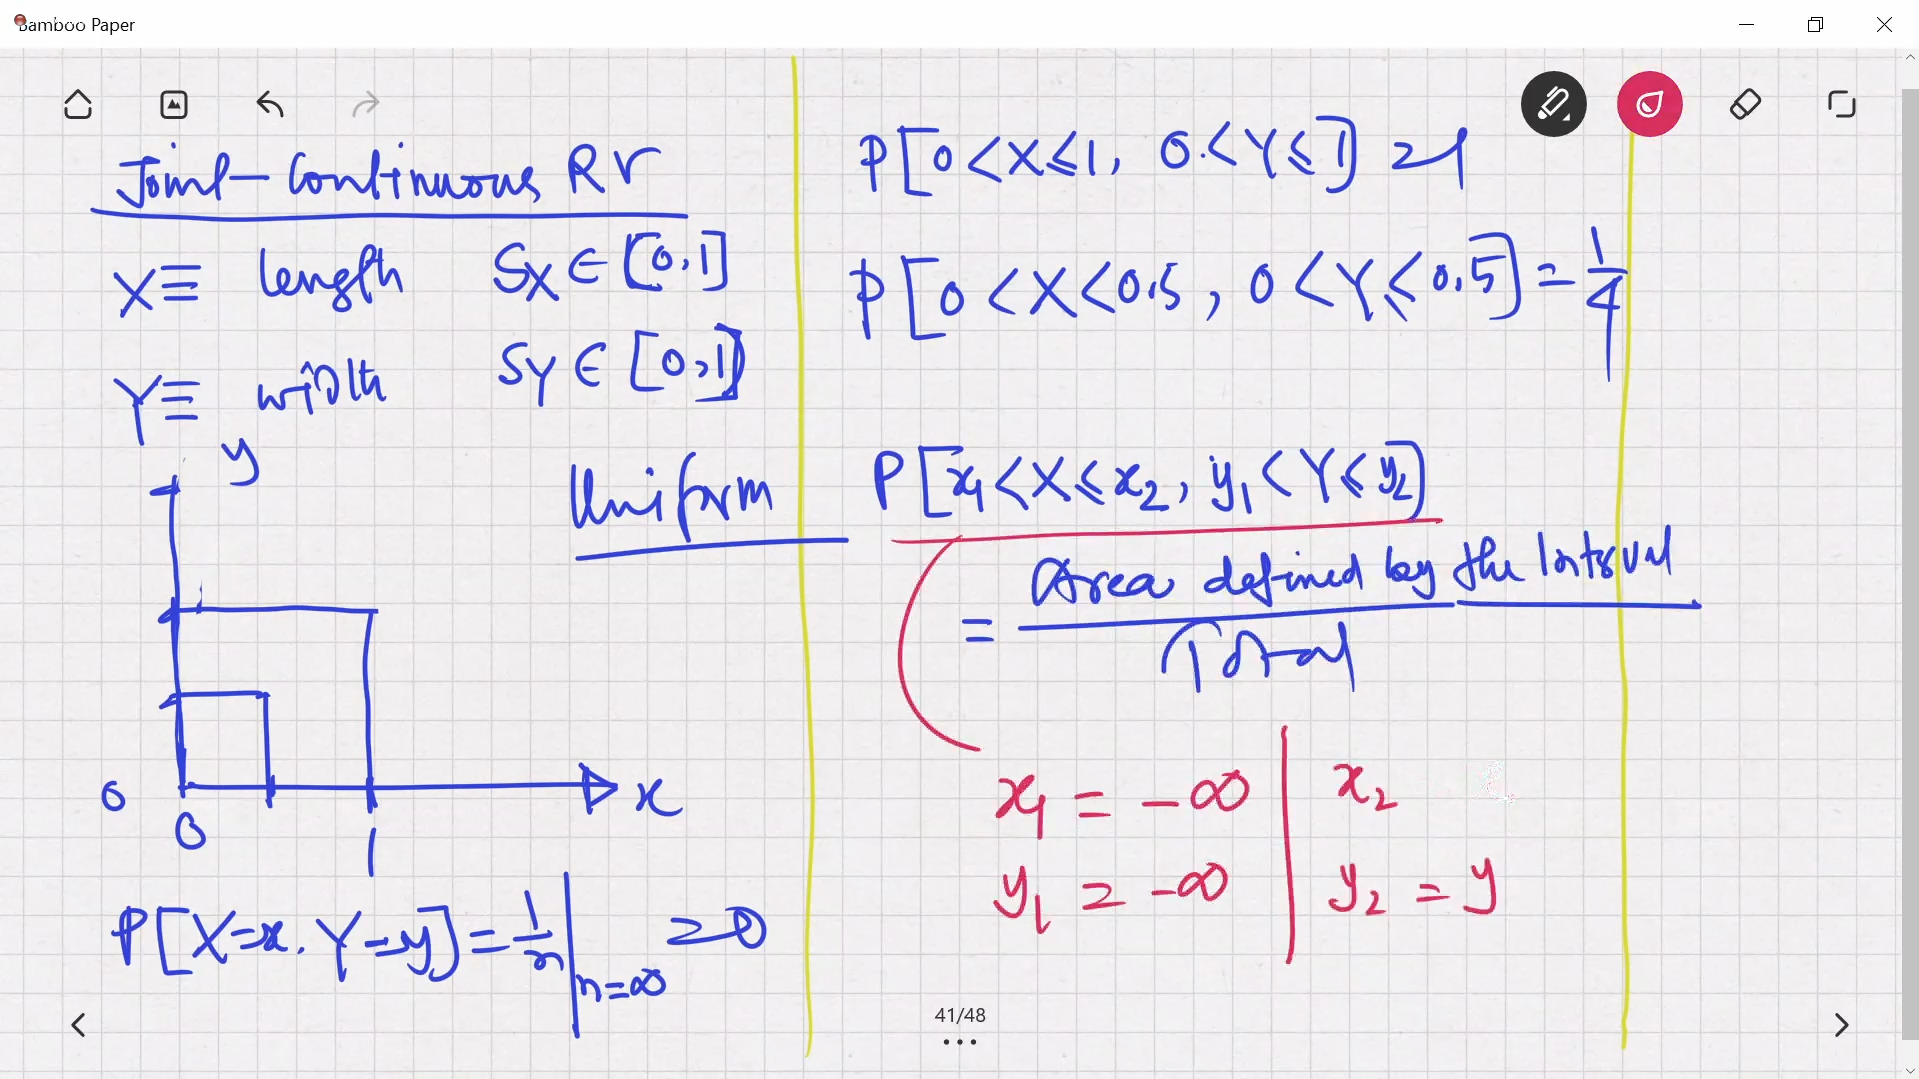 Bamboo Paper
Joint-Continuous RV
X ≡ length SX ∈ [0,1]
Y ≡ width SY ∈ [0,1]
y
Uniform
1
0
0
1
x
P[X=x, Y=y] = 1/n | n=∞ = 0
P[0<X≤1, 0<Y≤1] = 1
P[0<X<0.5, 0<Y≤0.5] = 1/4
P[x1<X≤x2, y1<Y≤y2]
= Area defined by the Interval / Total
x1 = -∞ | x2
y1 = -∞ | y2 = y
41/48